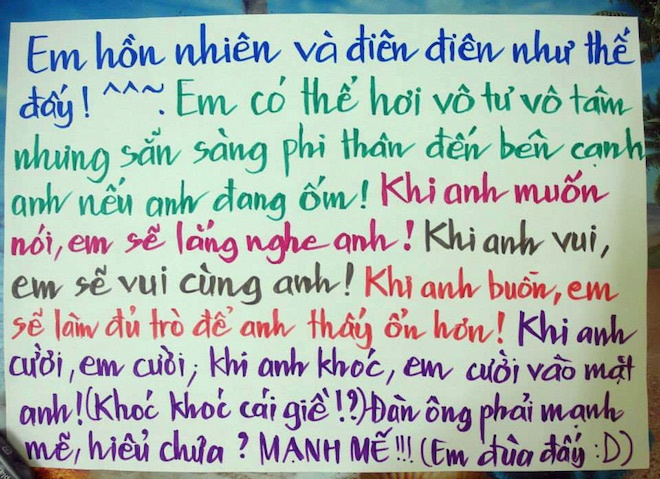 Em hồn nhiên và điên điên như thế
đấy! ^^~. Em có thể hơi vô tư vô tâm
nhưng sẵn sàng phi thân đến bên cạnh
anh nếu anh đang ốm! Khi anh muốn
nói, em sẽ lắng nghe anh! Khi anh vui,
em sẽ vui cùng anh! Khi anh buồn, em
sẽ làm đủ trò để anh thấy ổn hơn! Khi anh
cười, em cười; khi anh khóc, em cười vào mặt
anh! (Khóc khóc cái giề!?) Đàn ông phải mạnh
mẽ, hiểu chưa? MẠNH MẼ!!! (Em đùa đấy :D)